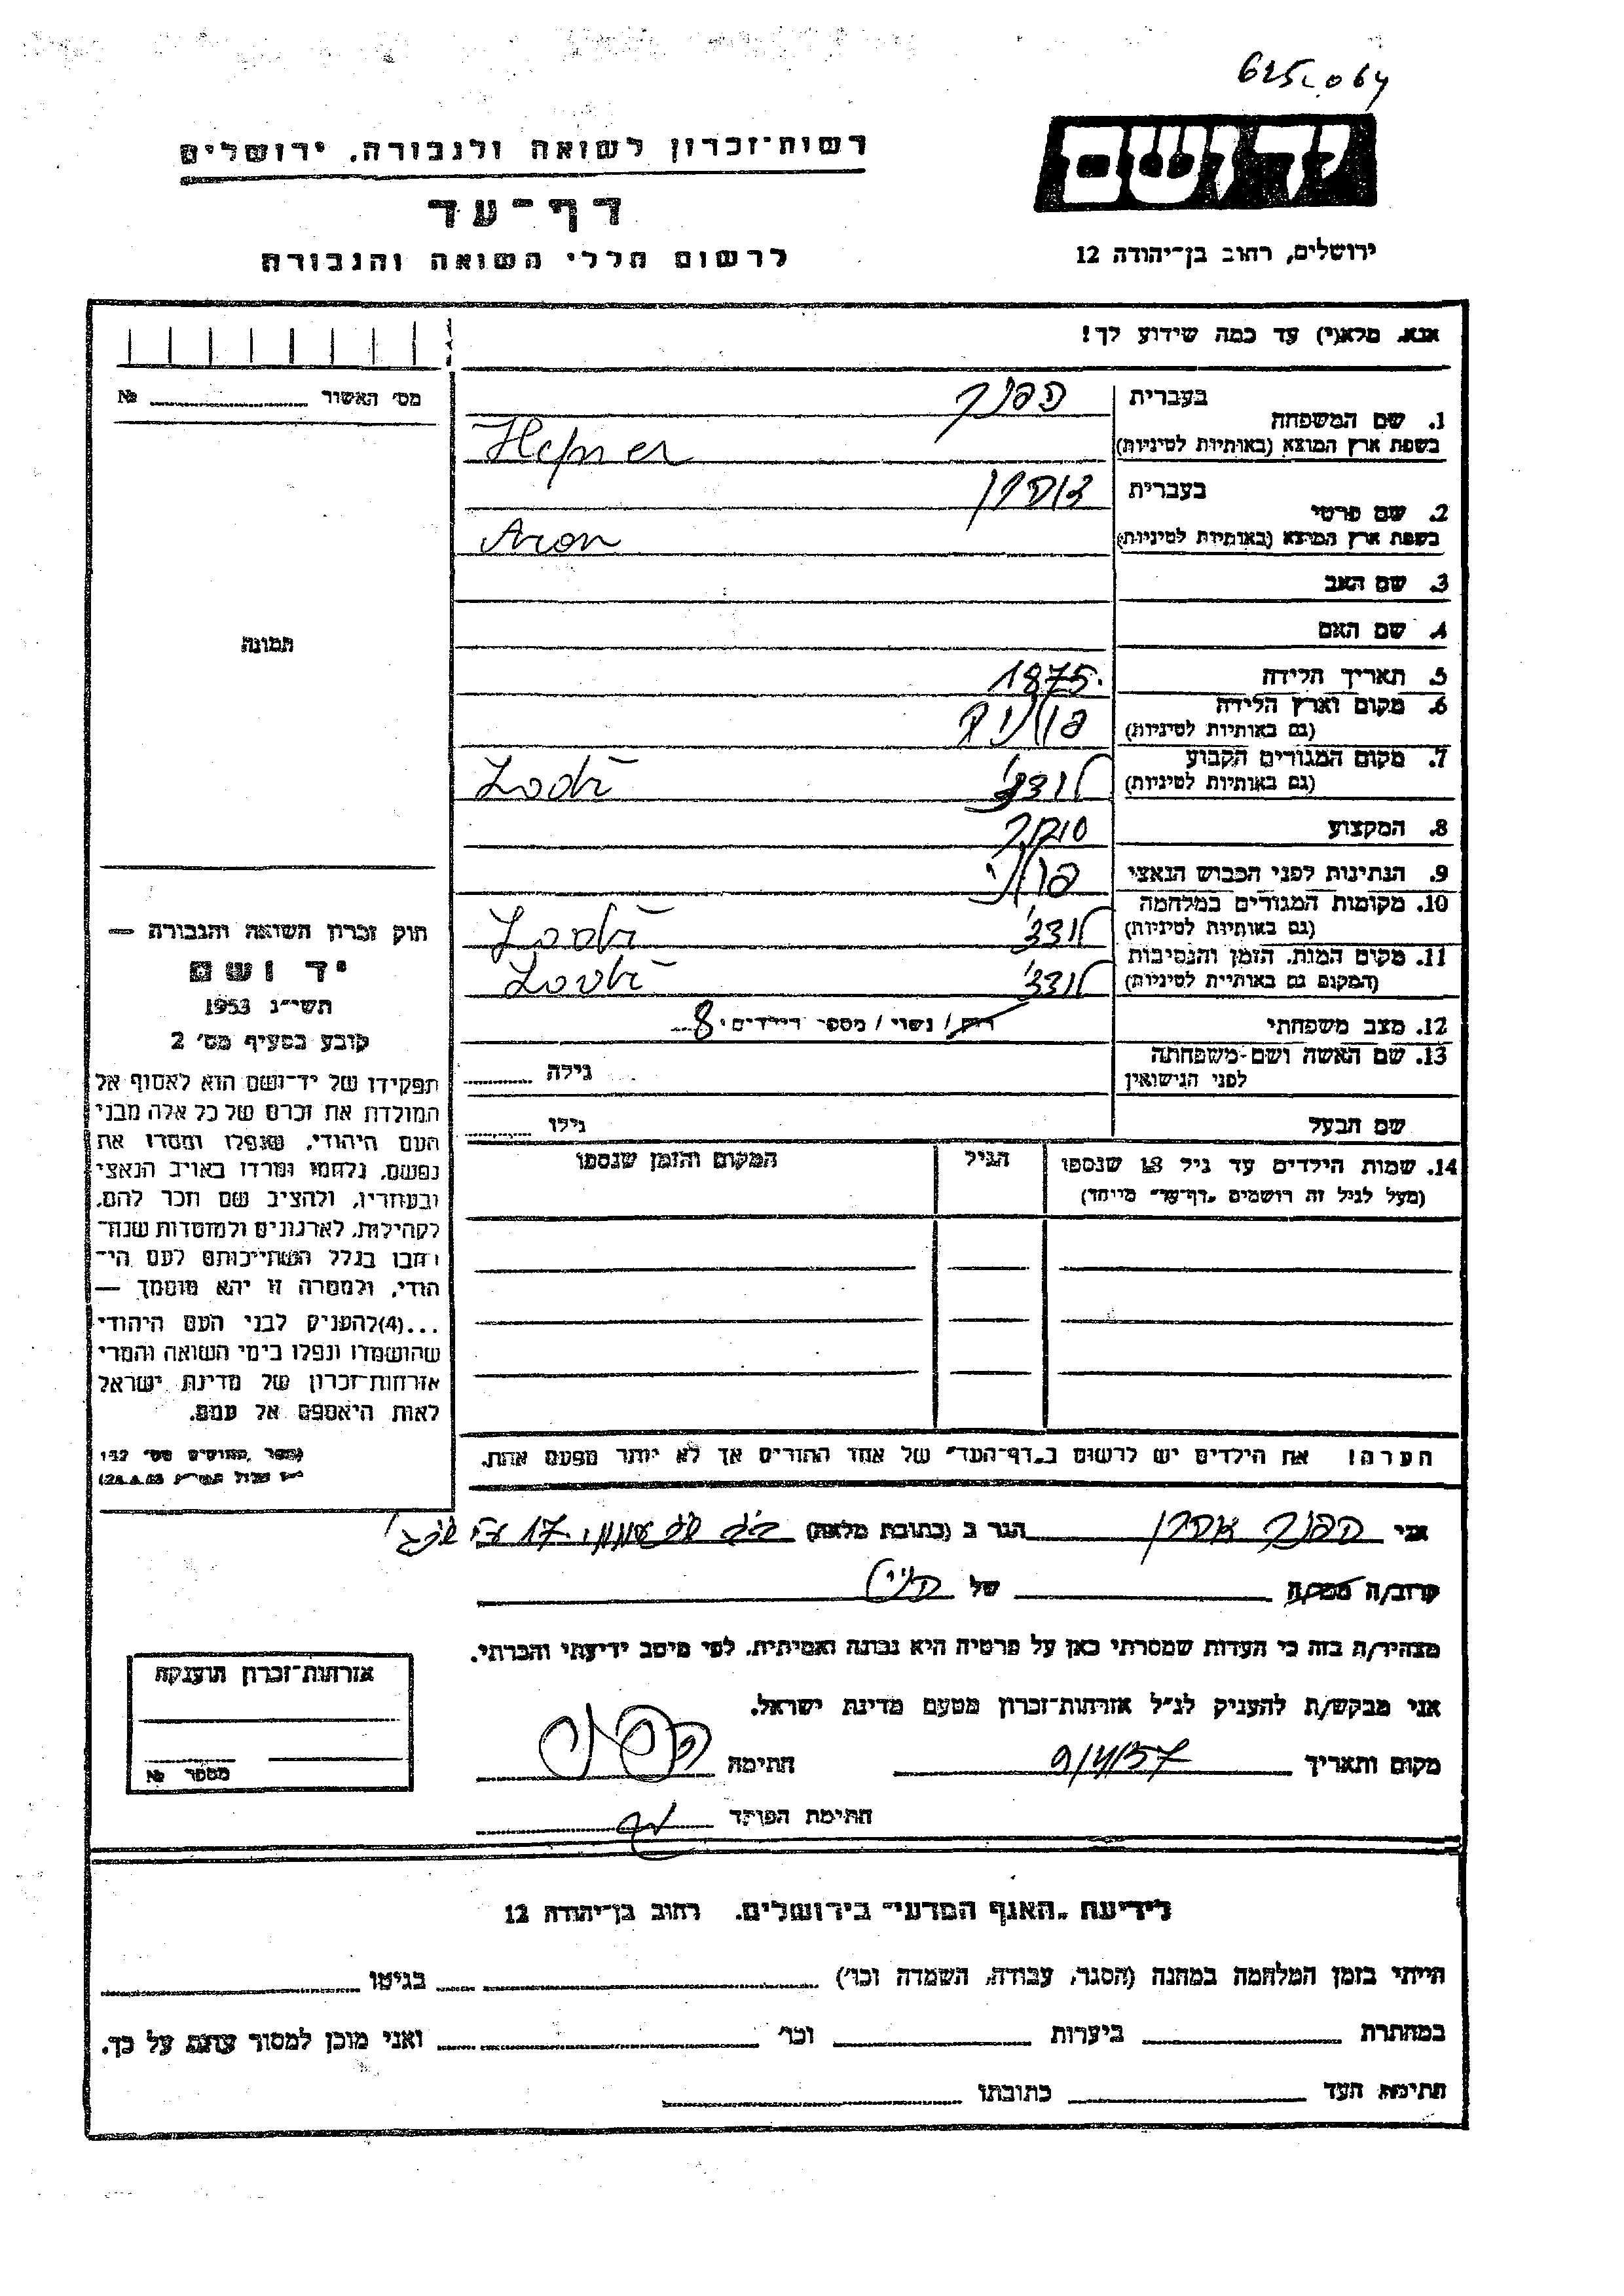 625064
יד ושם
רשות־זכרון לשואה ולגבורה, ירושלים
דף־עד
לרשום חללי השואה והגבורה
ירושלים, רחוב בן־יהודה 12
אנא, מלא(י) עד כמה שידוע לך!
מס' האשור № 
1. שם המשפחה
בעברית הפנר
בשפת ארץ המוצא (באותיות לטיניות) Hefner
2. שם פרטי
בעברית אהרון
בשפת ארץ המוצא (באותיות לטיניות) Aron
3. שם האב
4. שם האם
תמונה
5. תאריך הלידה 1875.
6. מקום וארץ הלידה
(גם באותיות לטיניות)
7. מקום המגורים הקבוע לודז'
(גם באותיות לטיניות) Lodź
8. המקצוע סוחר
9. הנתינות לפני הכבוש הנאצי פולני
10. מקומות המגורים במלחמה
(גם באותיות לטיניות) לודז' Lodź
11. מקום המות, הזמן והנסיבות
(המקום גם באותיות לטיניות) לודז' Lodź
12. מצב משפחתי רווק / נשוי / מספר הילדים 8
13. שם האשה ושם־משפחתה
לפני הנישואין
גילה
שם הבעל
גילו
14. שמות הילדים עד גיל 18 שנספו
(מעל לגיל זה רושמים "דף־עד" מיוחד)
הגיל
המקום והזמן שנספו
חוק זכרון השואה והגבורה —
יד ושם
תשי"ג 1953
קובע בסעיף מס' 2
תפקידו של יד־ושם הוא לאסוף אל
המולדת את זכרם של כל אלה מבני
העם היהודי, שנפלו ומסרו את
נפשם, נלחמו ומרדו באויב הנאצי
ובעוזריו, ולהציב שם וזכר להם,
לקהילות, לארגונים ולמוסדות שנח־
רבו בגלל השתייכותם לעם הי־
הודי, ולמטרה זו יהא מוסמך —
...(4) להעניק לבני העם היהודי
שהושמדו ונפלו בימי השואה והמרי
אזרחות־זכרון של מדינת ישראל
לאות היאספם אל עמם.
(ספר החוקים מס' 132
הערה! את הילדים יש לרשום ב"דף־העד" של אחד ההורים אך לא יותר מפעם אחת.
אני הפנר אהרון הגר ב (כתובת מלאה)
קרוב/ה מכר/ה של
מצהיר/ה בזה כי העדות שמסרתי כאן על פרטיה היא נכונה ואמיתית, לפי מיטב ידיעתי והכרתי.
אני מבקש/ת להעניק לנ"ל אזרחות־זכרון מטעם מדינת ישראל.
מקום ותאריך חתימה
חתימת הפוקד
אזרחות־זכרון הוענקה
מספר №
לידיעת "האגף המדעי" בירושלים, רחוב בן־יהודה 12
הייתי בזמן המלחמה במחנה (הסגר, עבודה, השמדה וכו') בגיטו
במחתרת ביערות וכו' ואני מוכן למסור עדות על כך.
חתימת העד כתובתו